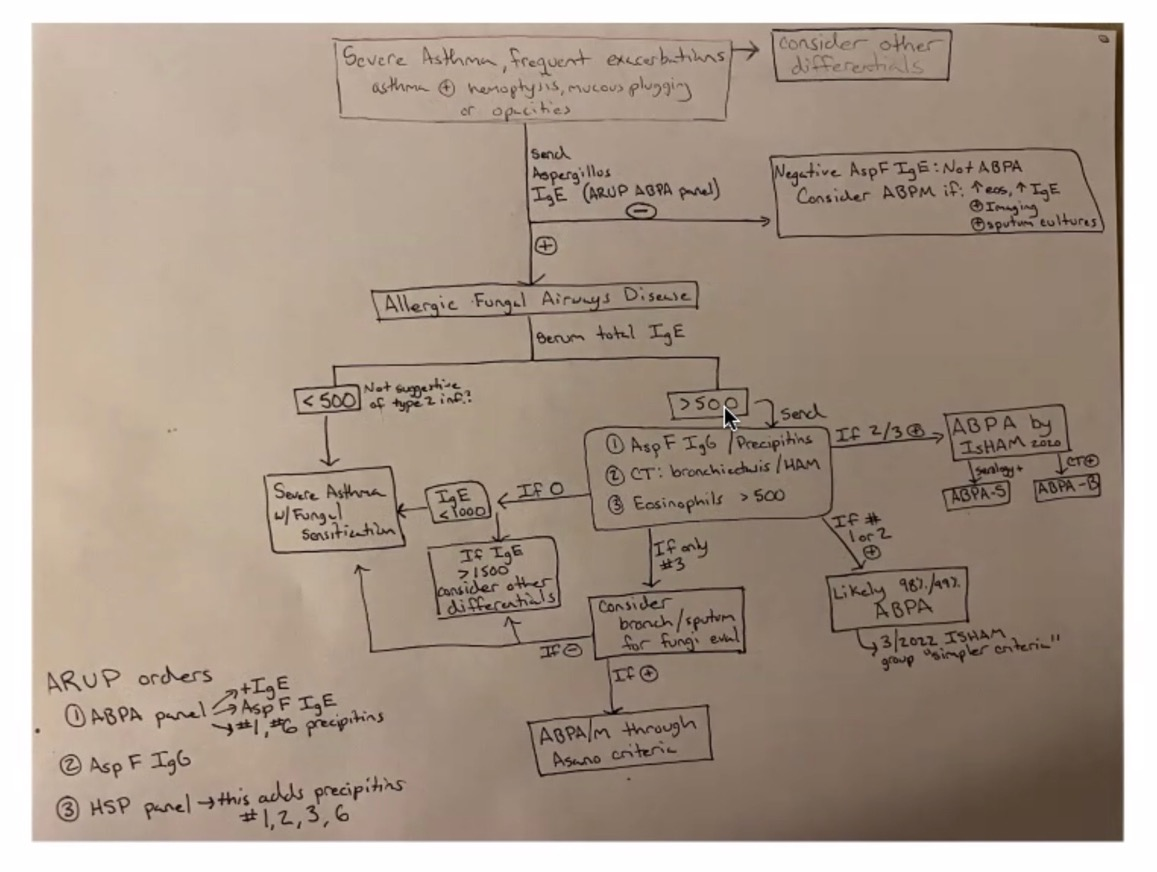 Severe Asthma, frequent exacerbations
asthma ⊕ hemoptysis, mucous plugging
or opacities
Consider other
differentials
Send
Aspergillus
IgE (ARUP ABPA panel)
⊖
Negative AspF IgE: Not ABPA
Consider ABPM if: ↑eos, ↑IgE
⊕Imaging
⊕sputum cultures
⊕
Allergic Fungal Airways Disease
Serum total IgE
<500
Not suggestive
of type 2 inf.?
>500
Send
① AspF IgG /Precipitins
② CT: bronchiectwis/HAM
③ Eosinophils >500
If 2/3 ⊕
ABPA by
IsHAM 2020
serology+
CT⊕
ABPA-S
ABPA-B
If 0
IgE
<1000
Severe Asthma
w/Fungal
Sensitication
If IgE
>1500
consider other
differentials
If only
#3
If #
1 or 2
⊕
Likely 98%/99%
ABPA
↳ 3/2022 ISHAM
group "simpler criteria"
Consider
bronch/sputum
for fungi eval
If ⊖
If ⊕
ABPA/m through
Asano criteria
ARUP orders
① ABPA panel → +IgE
→ Asp F IgE
→ #1, #6 precipitins
② Asp F IgG
③ HSP panel → this adds precipitins
#1, 2, 3, 6